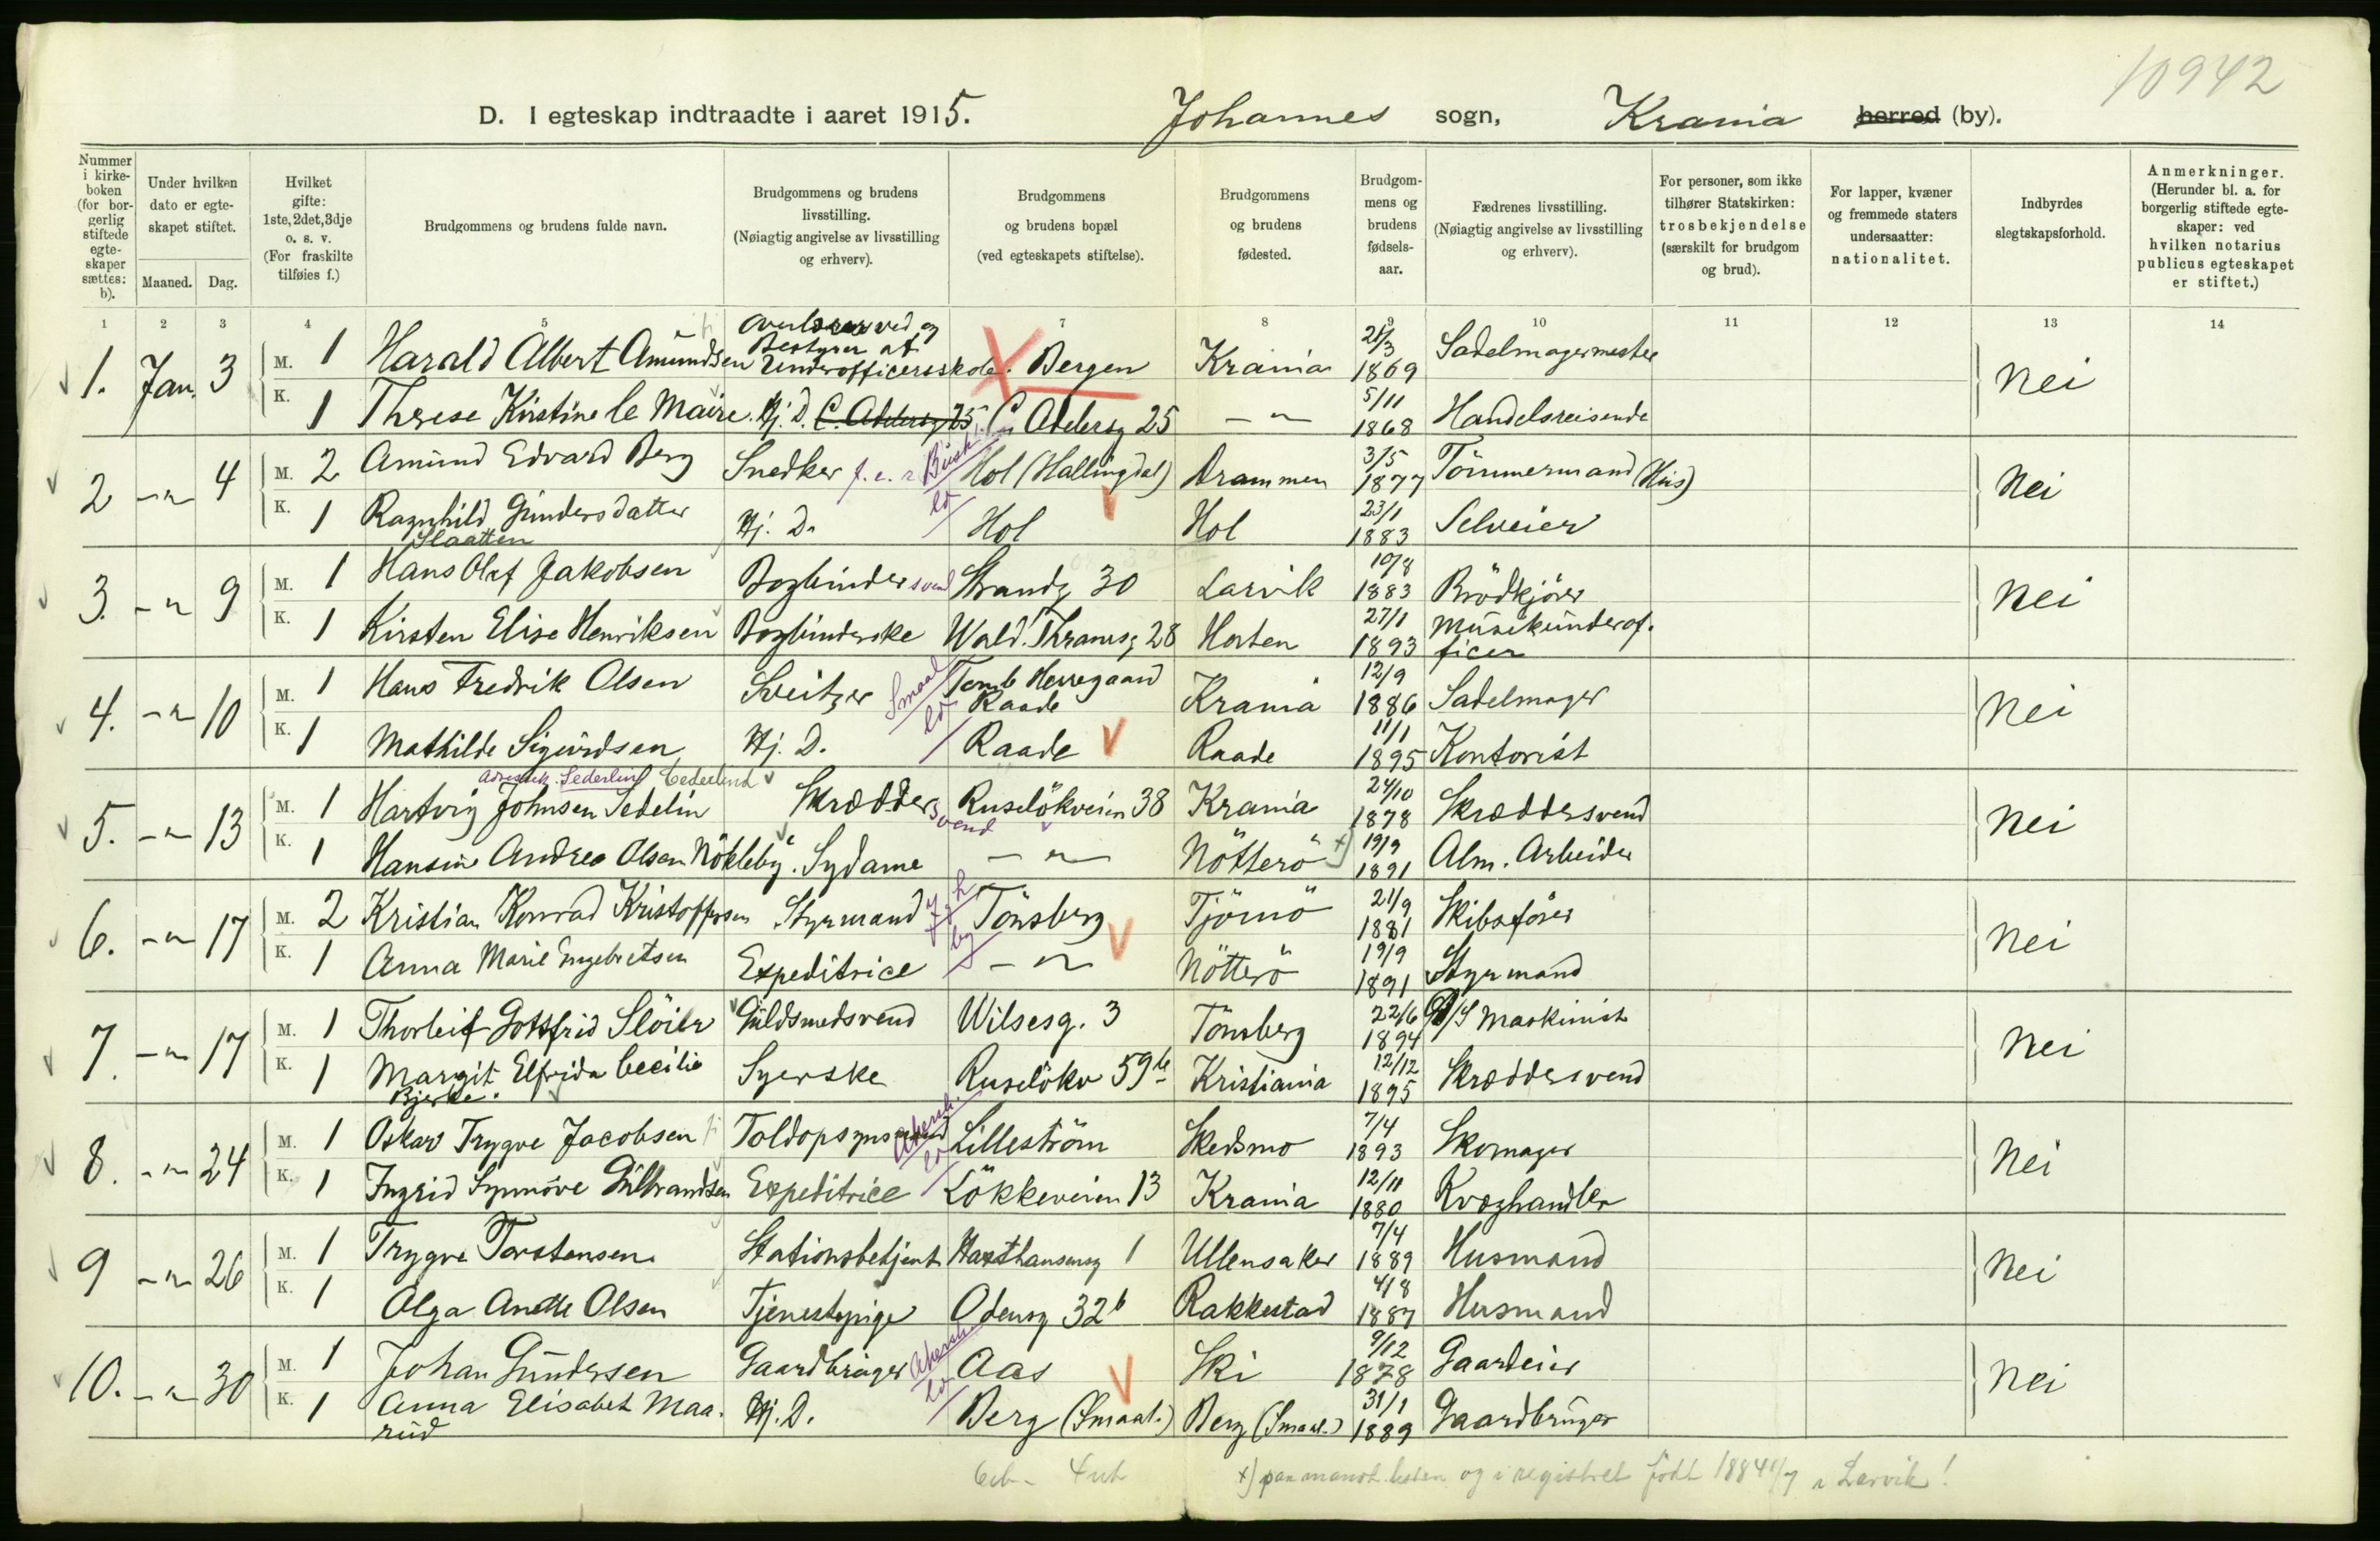 10942
D. I egteskap indtraadte i aaret 1915. Johannes sogn, Krania herred (by).
Nummer i kirkeboken (for borgerlig stiftede egteskaper sættes: b).
Under hvilken dato er egteskapet stiftet.
Maaned. Dag.
Hvilket gifte: 1ste, 2det, 3dje o. s. v. (For fraskilte tilføies f.)
Brudgommens og brudens fulde navn.
Brudgommens og brudens livsstilling. (Nøiagtig angivelse av livsstilling og erhverv).
Brudgommens og brudens bopæl (ved egteskapets stiftelse).
Brudgommens og brudens fødested.
Brudgommens og brudens fødselsaar.
Fædrenes livsstilling. (Nøiagtig angivelse av livsstilling og erhverv).
For personer, som ikke tilhører Statskirken: trosbekjendelse (særskilt for brudgom og brud).
For lapper, kvæner og fremmede staters undersaatter: nationalitet.
Indbyrdes slegtskapsforhold.
Anmerkninger. (Herunder bl. a. for borgerlig stiftede egteskaper: ved hvilken notarius publicus egteskapet er stiftet.)
1 2 3 4 5 7 8 9 10 11 12 13 14
1. Jan. 3 M. 1 Harald Albert Amundsen ved og Bestyrer af Underofficersskole. Bergen Krania 21/3 1869 Sadelmagermester Nei
K. 1 Therese Kirstine le Maire. Hj. D. C. Adelersg 25 C. Adelersg 25 -"- 5/11 1868 Handelsreisende
2 -"- 4 M. 2 Amund Edvard Berg Snedker f. e. r Busk. Hol (Hallingdal) Drammen 3/5 1877 Tömmermand (Hus) Nei
K. 1 Ragnhild Gundersdatter Slaatten Hj. D. Hol Hol 23/1 1883 Selveier
3. -"- 9 M. 1 Hans Olaf Jakobsen Bogbindersvend Strandg 30 Larvik 10/8 1883 Brödkjörer Nei
K. 1 Kirsten Elise Henriksen Bogbinderske Wald. Thranesg 28 Horten 27/1 1893 Musikunderofficer
4. -"- 10 M. 1 Hans Fredrik Olsen Sveitzer Smaal Tomb Herregaard Raade Krania 12/9 1886 Sadelmager Nei
K. 1 Mathilde Sigurdsen Hj. D. Raade Raade 11/1 1895 Kontorist
Adressek. Sederlind Cederlund
5. -"- 13 M. 1 Hartvig Johnsen Sedelin Skræddersvend Ruselökveien 38 Krania 24/10 1878 Skræddersvend Nei
K. 1 Hansine Andrea Olsen Nökleby. Sydame -"- Nötterö x) 19/9 1891 Alm. Arbeider
6. -"- 17 M. 2 Kristian Konrad Kristoffersen Styrmand Tönsberg Tjömö 21/9 1881 Skibsförer Nei
K. 1 Anna Marie Engebretsen Expeditrice -"- Nötterö 19/9 1891 Styrmand
7. -"- 17 M. 1 Thorleif Gottfrid Slöiler Guldsmedsvend Wilsesg. 3 Tönsberg 22/6 1894 D/S Maskinist Nei
K. 1 Margit Elfrida Cecilie Bjerke. Syerske Ruselökv 59b Kristiania 12/12 1895 Skræddersvend
8. -"- 24 M. 1 Oskar Trygve Jacobsen Toldopsynsmand Akersh. Lilleström Skedsmo 7/4 1893 Skomager Nei
K. 1 Ingrid Synnöve Gulbrandsen Expeditrice Lökkeveien 13 Krania 12/11 1880 Kvæghandler
9 -"- 26 M. 1 Trygve Torstensen Stationsbetjent Haxthausensg 1 Ullensaker 7/4 1889 Husmand Nei
K. 1 Olga Anette Olsen Tjenestepige Odensg 32b Rakkestad 4/8 1887 Husmand
10. -"- 30 M. 1 Johan Gundersen Gaardbruger Akersh. Aas Ski 9/12 1878 Gaardeier Nei
K. 1 Anna Elisabet Maarud Hj. D. Berg (Smaal.) Berg (Smaal.) 31/1 1889 Gaardbruger
6 ib - 4 ub x) paa mandt.listen og i registret födt 1884 11/7 i Larvik!